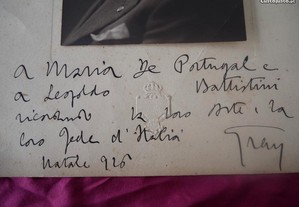 A Maria De Portugal e
a Leopoldo Battistini
ricordando la loro Arte, la
loro fede d'Italia
Natale 926